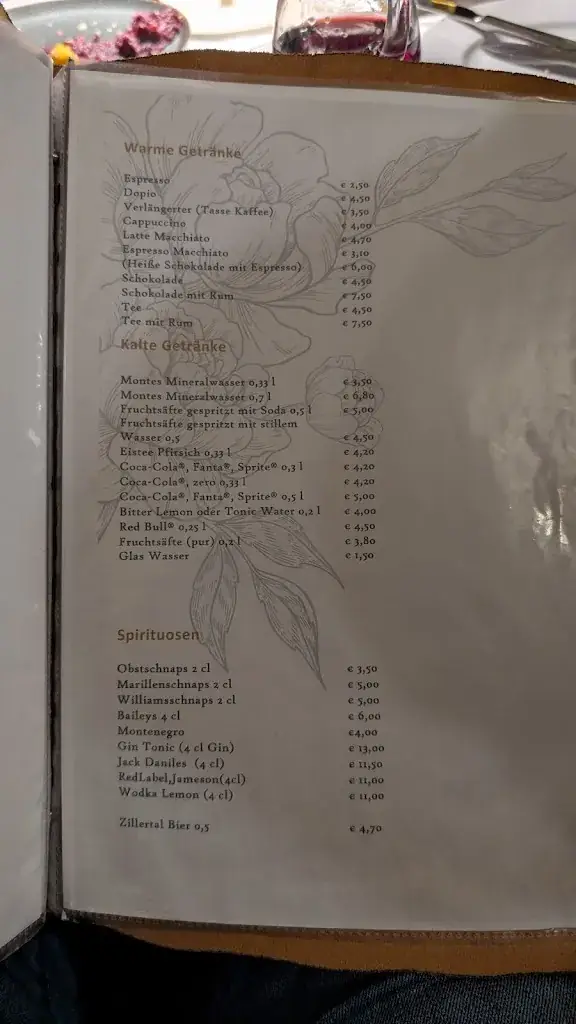 Warme Getränke
Espresso € 2,50
Dopio € 4,50
Verlängerter (Tasse Kaffee) € 3,50
Cappuccino € 4,00
Latte Macchiato € 4,70
Espresso Macchiato € 3,10
(Heiße Schokolade mit Espresso) € 6,00
Schokolade € 4,50
Schokolade mit Rum € 7,50
Tee € 4,50
Tee mit Rum € 7,50
Kalte Getränke
Montes Mineralwasser 0,33 l € 3,50
Montes Mineralwasser 0,7 l € 6,80
Fruchtsäfte gespritzt mit Soda 0,5 l € 5,00
Fruchtsäfte gespritzt mit stillem
Wasser 0,5 € 4,50
Eistee Pfitsich 0,33 l € 4,20
Coca-Cola®, Fanta®, Sprite® 0,3 l € 4,20
Coca-Cola®, zero 0,33 l € 4,20
Coca-Cola®, Fanta®, Sprite® 0,5 l € 5,00
Bitter Lemon oder Tonic Water 0,2 l € 4,00
Red Bull® 0,25 l € 4,50
Fruchtsäfte (pur) 0,2 l € 3,80
Glas Wasser € 1,50
Spirituosen
Obstschnaps 2 cl € 3,50
Marillenschnaps 2 cl € 5,00
Williamsschnaps 2 cl € 5,00
Baileys 4 cl € 6,00
Montenegro €4,00
Gin Tonic (4 cl Gin) € 13,00
Jack Daniles (4 cl) € 11,50
RedLabel,Jameson(4cl) € 11,00
Wodka Lemon (4 cl) € 11,00
Zillertal Bier 0,5 € 4,70